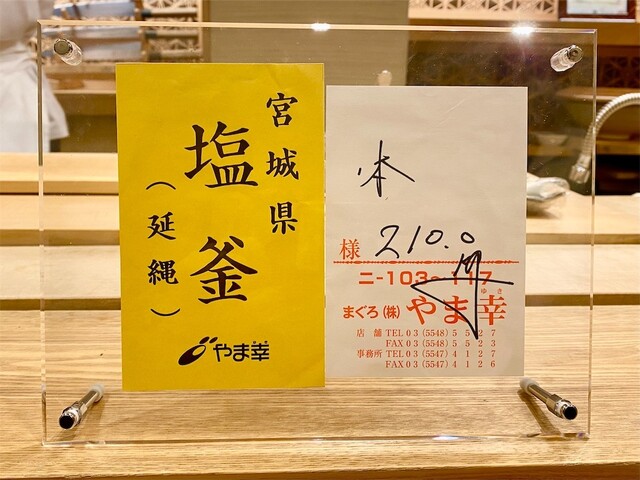 宮城県
塩釜
（延縄）
やま幸
本
様 210.0
ニ-103~117
まぐろ（株）やま幸
ゆき
店舗 TEL 03（5548）5527
FAX 03（5548）5523
事務所 TEL 03（5547）4127
FAX 03（5547）4126